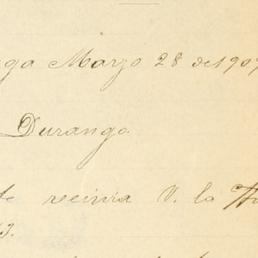 ga Marzo 28 de 190
Durango
te recivia V. la